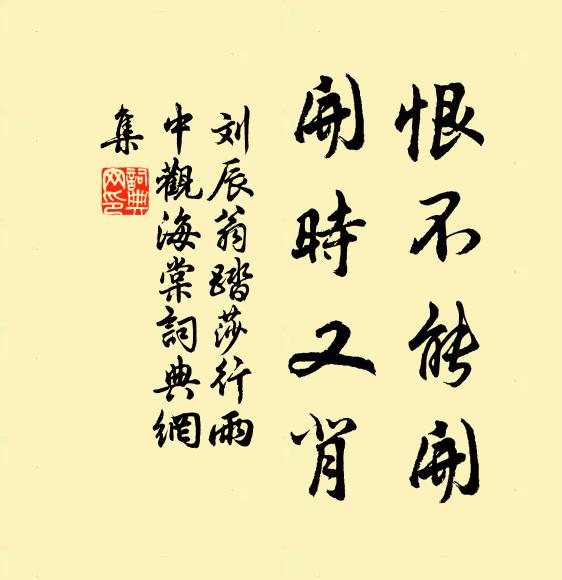 恨不能開
開時又肖
刘辰翁踏莎行雨
中觀海棠詞典網
集
詞典
网印